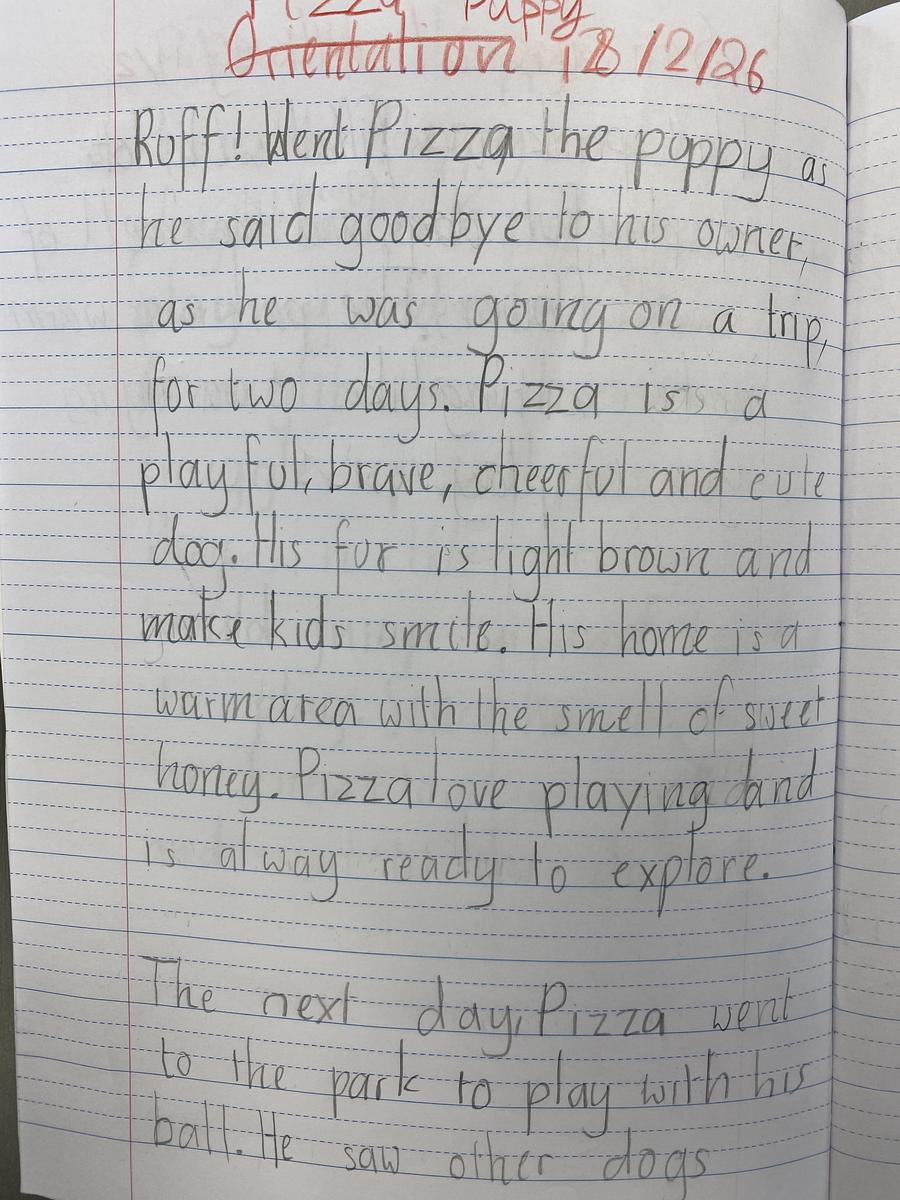 Pizza Puppy
Orientation 18/2/26
Ruff! Went Pizza the puppy as
he said goodbye to his owner,
as he was going on a trip,
for two days. Pizza is a
playful, brave, cheerful and cute
dog. His fur is light brown and
make kids smile. His home is a
warm area with the smell of sweet
honey. Pizza love playing and
is alway ready to explore.
The next day, Pizza went
to the park to play with his
ball. He saw other dogs